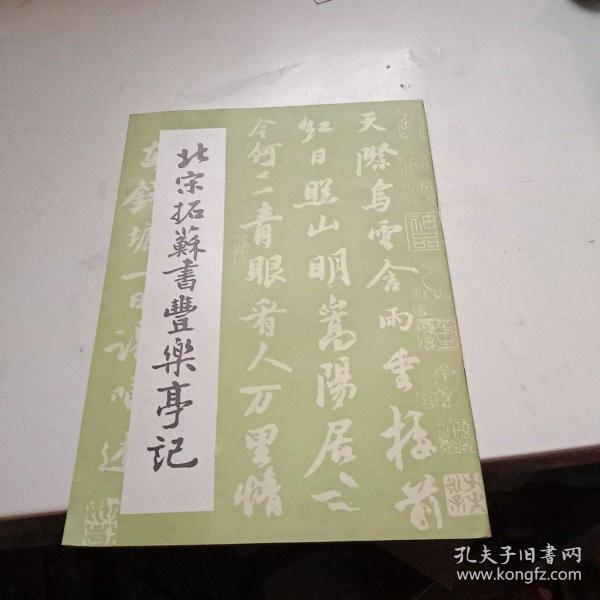 北宋拓蘇書豐樂亭記
天際烏雲含雨重樓前
紅日照山明嵩陽居士
今何在青眼看人万里情
孔夫子旧书网
www.kongfz.com